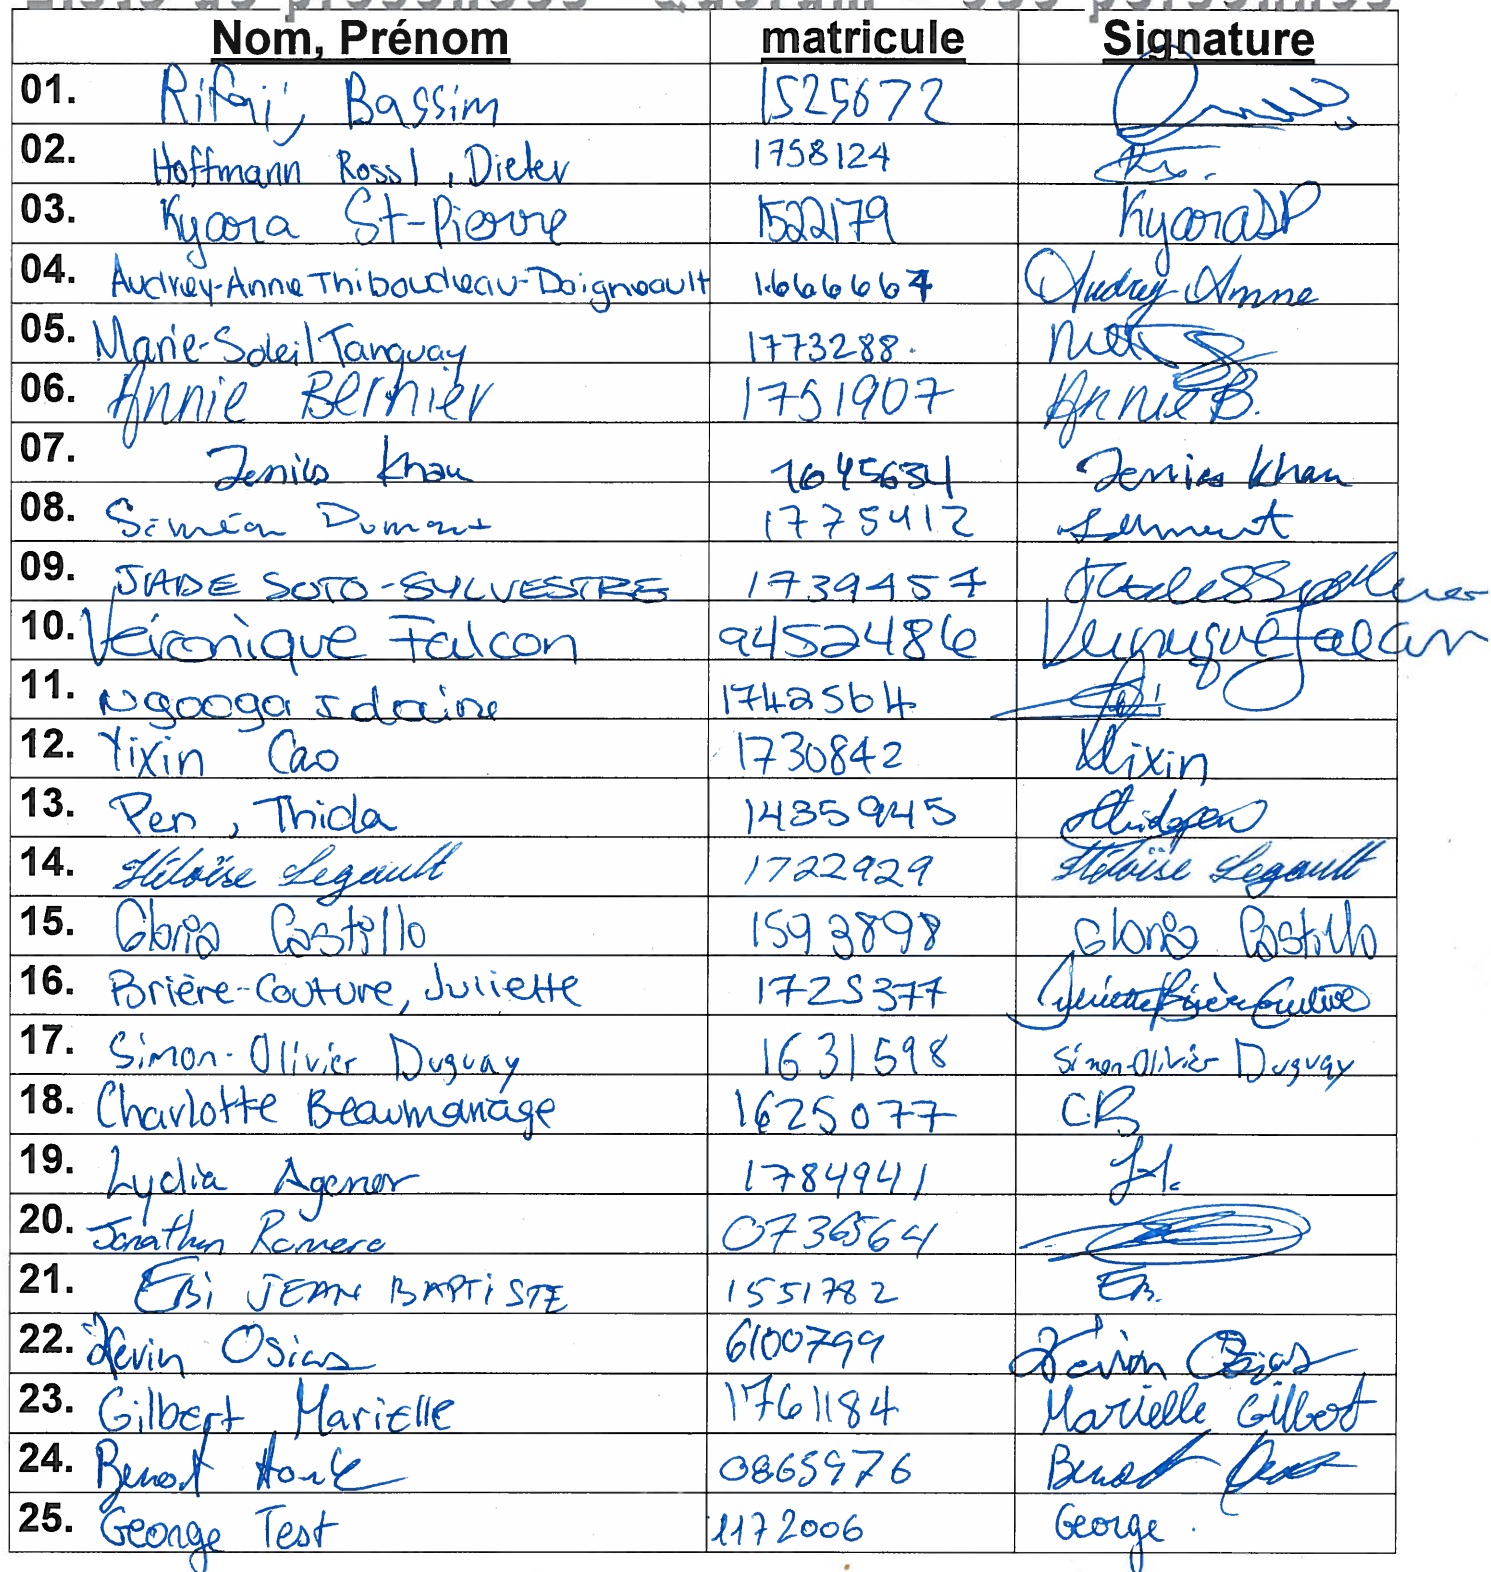 Nom, Prénom matricule Signature
01. Rifai, Bassim 1525672
02. Hoffmann Rossl, Dieter 1758124
03. Kycora St-Pierre 1522179 KycoraSP
04. Audrey-Anne Thiboudeau-Daigneault 1666667 Audrey-Anne
05. Marie-Soleil Tanguay 1773288.
06. Annie Bernier 1751907 Annie B.
07. Khan 1645634 Khan
08. Siméon Dumont 1775412
09. JADE SOTO-SYLVESTRE 1739457
10. Véronique Falcon 9452486 Veronique Falcon
11. Ngooga Idaine 1742564
12. Yixin Cao 1730842 Yixin
13. Pen, Thida 1435945
14. Héloïse Legault 1722929 Héloïse Legault
15. Gloria Castillo 1593898 Gloria Castillo
16. Brière-Couture, Juliette 1725377 Juliette Brière Couture
17. Simon-Olivier Duguay 1631598 Simon-Olivier Duguay
18. Charlotte Beaumanage 1625077 CB
19. Lydia Agenor 1784941
20. Jonathan Romero 0736564
21. EBi JEAN BAPTiSTE 1551782 EB.
22. Kevin Osias 6100799 Kevin Osias
23. Gilbert Marielle 1761184 Marielle Gilbert
24. Benoit 0865976 Benoit
25. George Test 1172006 George.